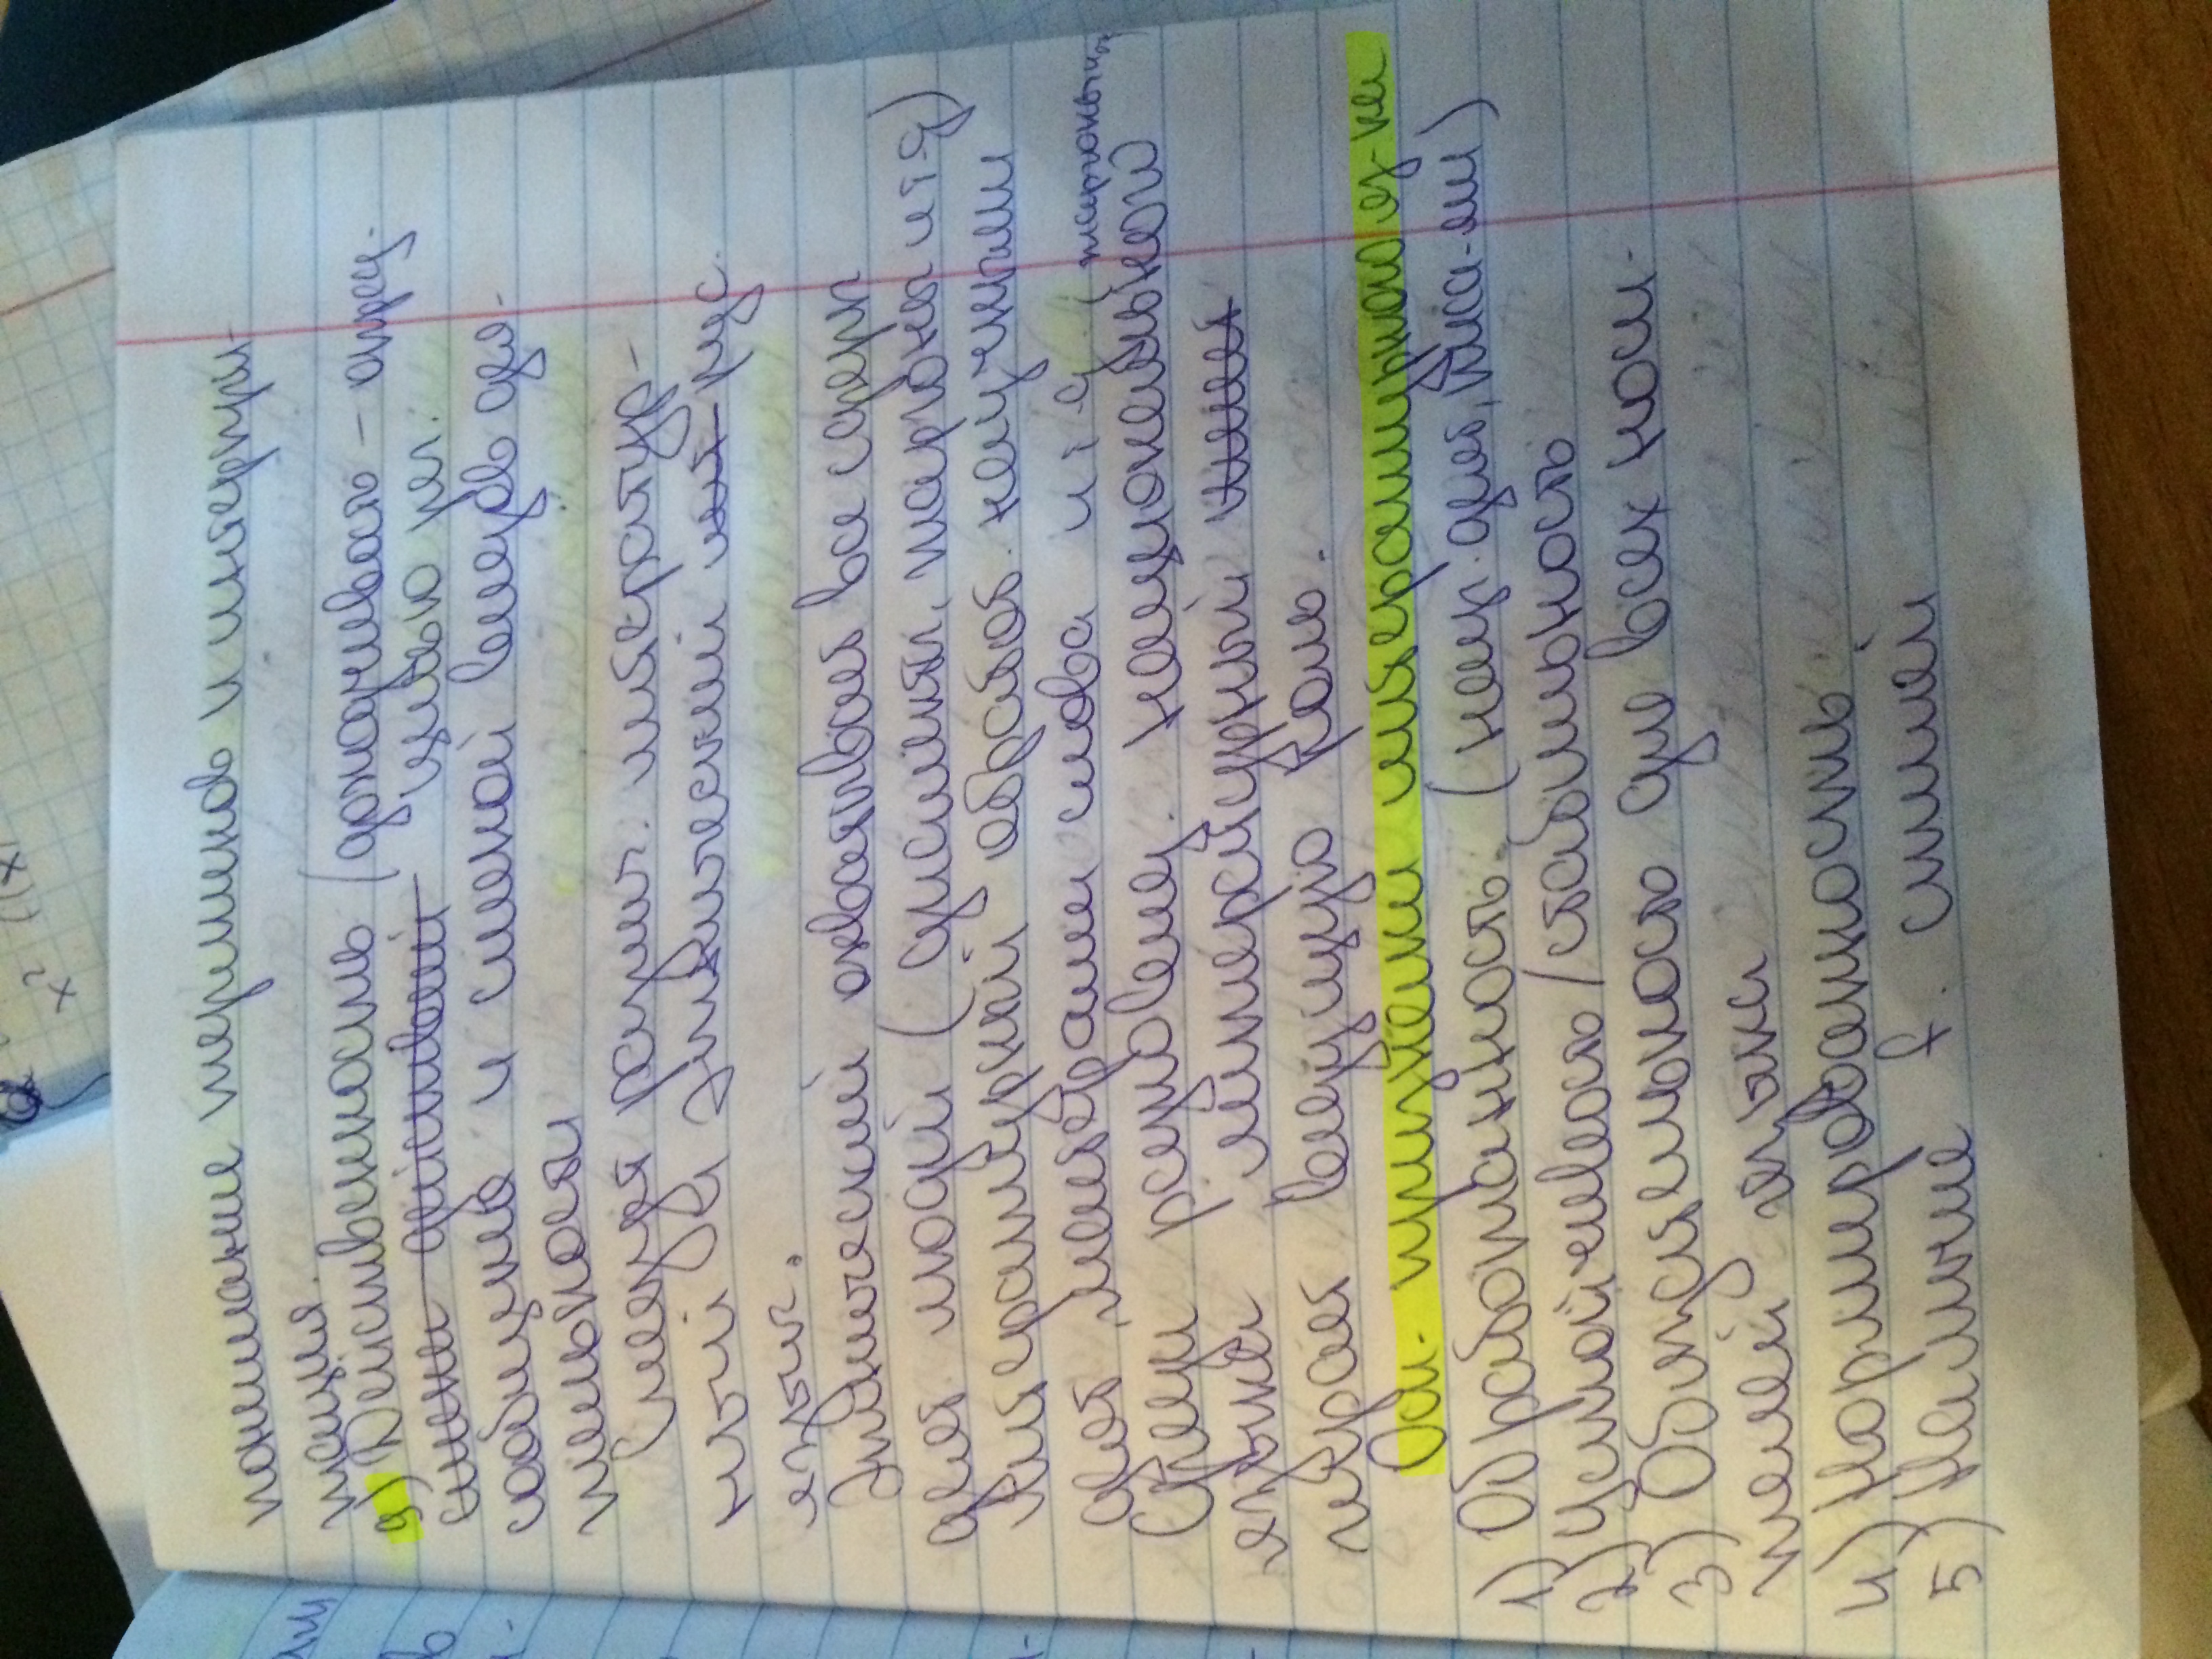 x² f(x)
понимание терминов и интерпри-
тация.
9) Действенность (доходчивость – опред.
смена действий целью реч.
сообщения и сменой видов дея-
тельности
Следует различ. литератур-
ный и этнический лит рус.
язык.
Этнический охватывает все сферы
деят людей (диалекты, жаргоны и т д)
литературный обработ. научными
деят, мастерами слова и т д. (жаргоны
Среди разновид. национальной
языка, литературный имеет
играет ведущую роль.
Осн. признаки литературного яз-ка
1) Обработанность. (науч. деят, писа-ями)
2) Устойчивость/стабильность
3) Обязательность для всех носи-
телей языка
4) Нормированность
5) Наличие f. стилей